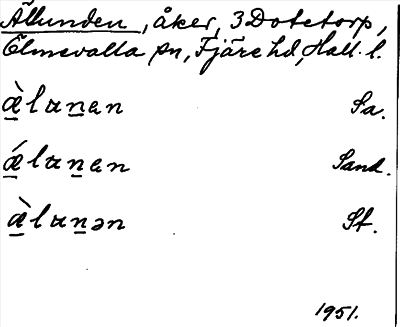 Ällunden, åker, 3 Dotetorp,
Ölmevalla sn, Fjäre hd, Hall. l.
æ̀lanen Sa.
ǽlanen Sand.
æ̀lanən St.
1951.